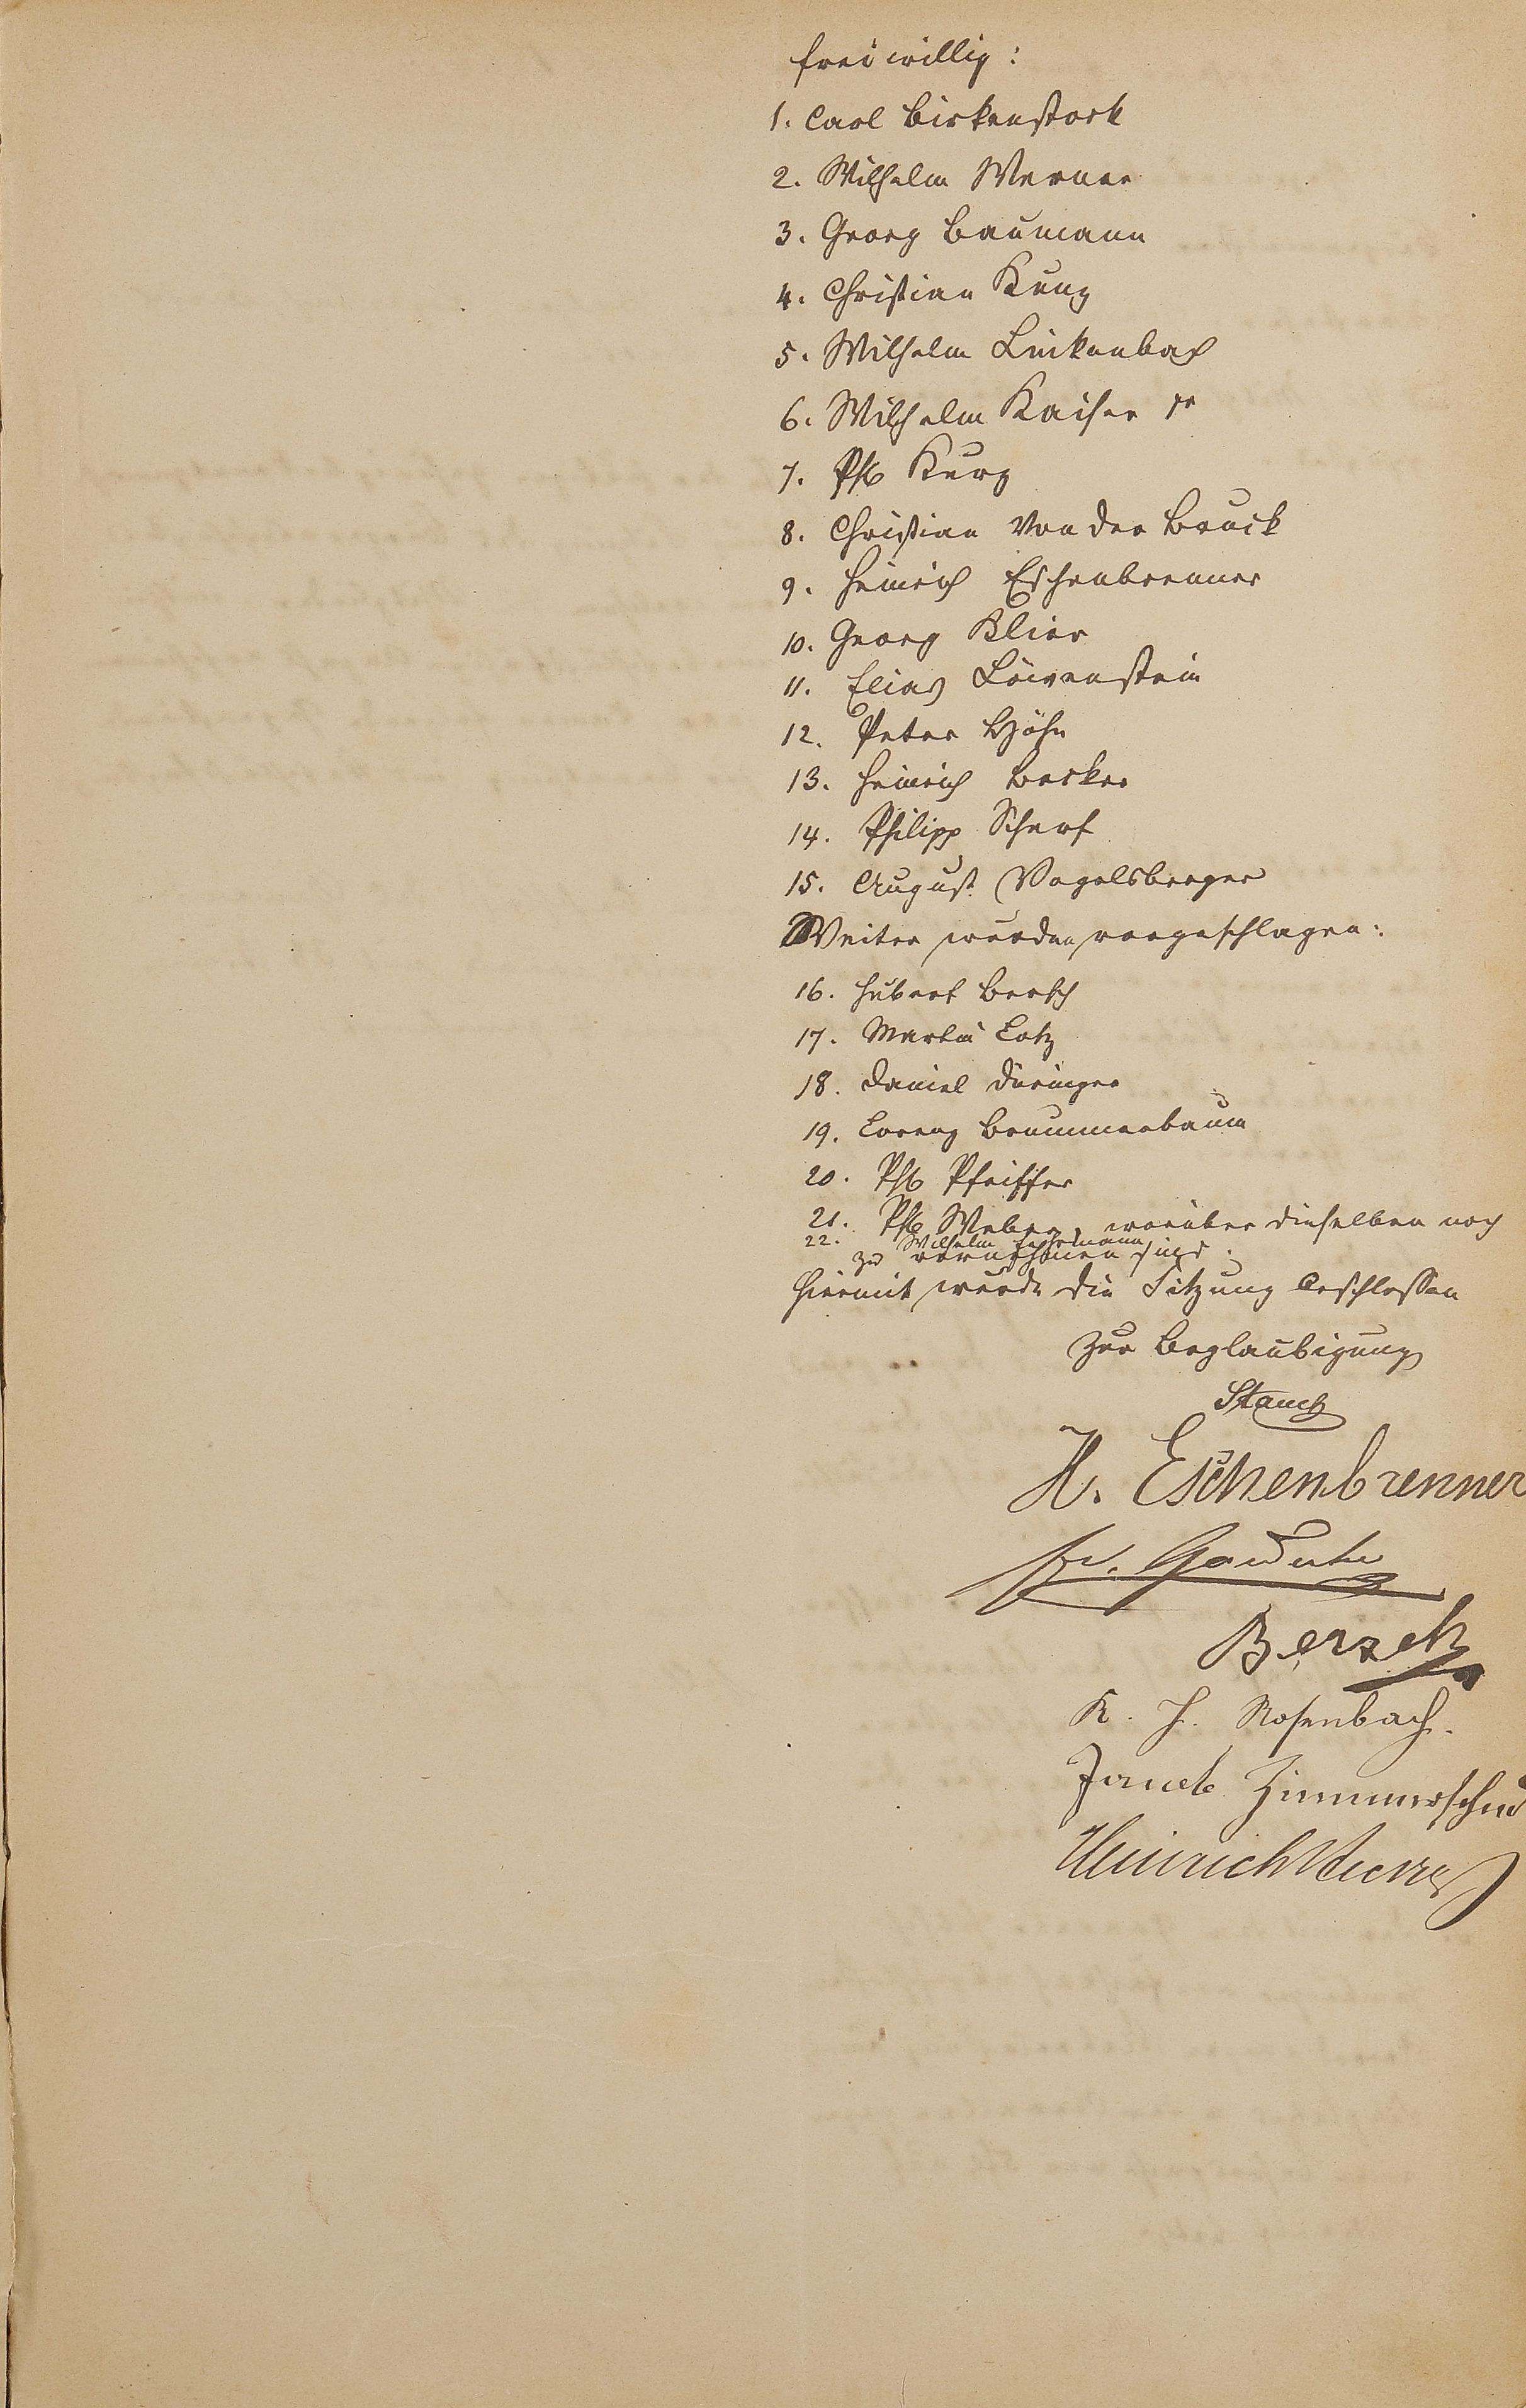 freiwillig:
1. Carl Birkenstock
2. Wilhelm Werner
3. Georg Baumann
4. Christian Kunz
5. Wilhelm Luckenbach
6. Wilhelm Kaiser jr
7. Phil Kurz
8. Christian Von der Bruck
9. Heinrich Eschenbrenner
10. Georg Klier
11. Elias Löwenstein
12. Peter Höhn
13. Heinrich Becker
14. Philipp Scharf
15. August Vogelsberger
Weiter wurden vorgeschlagen:
16. Hubert Bersch
17. Martin Lotz
18. Daniel Düringer
19. Lorenz Brummerbaum
20. Phil Pfeiffer
21. Phil Weber, worüber dieselben noch
22. Wilhelm
zu vernehmen sind.
Hiermit wurde die Sitzung beschlossen
Zur Beglaubigung
H. Eschenbrenner
Bersch
K. H. Rosenbach.
Jacob Zimmerschied
Heinrich